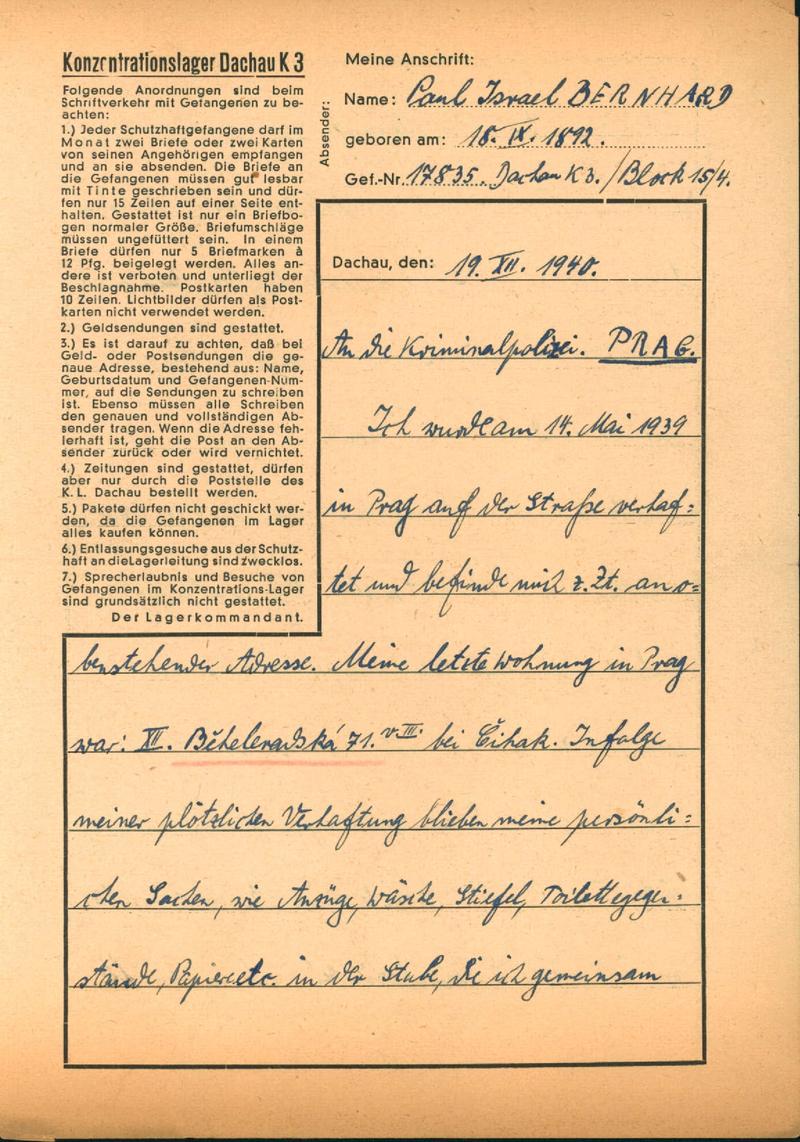 Konzentrationslager Dachau K 3
Folgende Anordnungen sind beim
Schriftverkehr mit Gefangenen zu be-
achten:
1.) Jeder Schutzhaftgefangene darf im
Monat zwei Briefe oder zwei Karten
von seinen Angehörigen empfangen
und an sie absenden. Die Briefe an
die Gefangenen müssen gut lesbar
mit Tinte geschrieben sein und dür-
fen nur 15 Zeilen auf einer Seite ent-
halten. Gestattet ist nur ein Briefbo-
gen normaler Größe. Briefumschläge
müssen ungefüttert sein. In einem
Briefe dürfen nur 5 Briefmarken à
12 Pfg. beigelegt werden. Alles an-
dere ist verboten und unterliegt der
Beschlagnahme. Postkarten haben
10 Zeilen. Lichtbilder dürfen als Post-
karten nicht verwendet werden.
2.) Geldsendungen sind gestattet.
3.) Es ist darauf zu achten, daß bei
Geld- oder Postsendungen die ge-
naue Adresse, bestehend aus: Name,
Geburtsdatum und Gefangenen-Num-
mer, auf die Sendungen zu schreiben
ist. Ebenso müssen alle Schreiben
den genauen und vollständigen Ab-
sender tragen. Wenn die Adresse feh-
lerhaft ist, geht die Post an den Ab-
sender zurück oder wird vernichtet.
4.) Zeitungen sind gestattet, dürfen
aber nur durch die Poststelle des
K. L. Dachau bestellt werden.
5.) Pakete dürfen nicht geschickt wer-
den, da die Gefangenen im Lager
alles kaufen können.
6.) Entlassungsgesuche aus der Schutz-
haft an die Lagerleitung sind zwecklos.
7.) Sprecherlaubnis und Besuche von
Gefangenen im Konzentrations-Lager
sind grundsätzlich nicht gestattet.
Der Lagerkommandant.
Absender:
Meine Anschrift:
Name: Paul Israel BERNHARD
geboren am: 18. IX. 1892.
Gef.-Nr. 17835. Dachau K 3. / Block 15/4.
Dachau, den: 19. XII. 1940.
An die Kriminalpolizei. PRAG.
Ich wurde am 14. Mai 1939
in Prag auf der Straße verhaf=
tet und befinde mich z. Zt. an o=
benstehender Adresse. Meine letzte Wohnung in Prag
war: XII. 71. bei Čihak. Infolge
meiner plötzlichen Verhaftung blieben meine persönli=
chen Sachen, wie Anzüge, Wäsche, Stiefel, Toilettegegen=
stände, Papiere etc. in der Stube, die ich gemeinsam